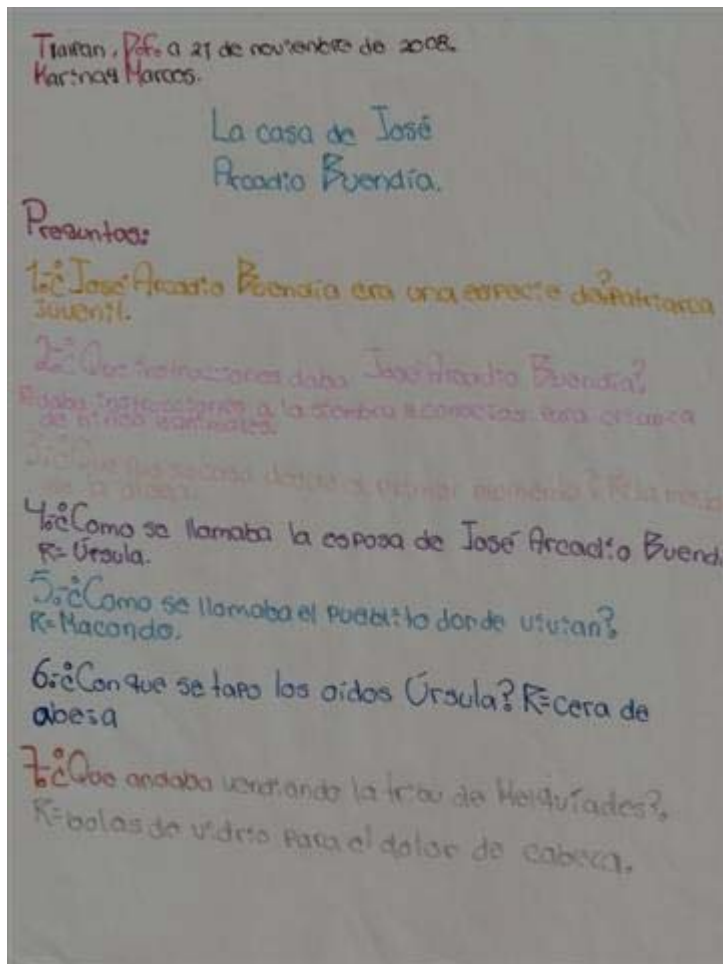 Tlalpan, D.f. a 21 de noviembre de 2008.
Karina y Marcos.
La casa de José
Arcadio Buendía.
Preguntas:
1.-¿José Arcadio Buendía era una especie de? Patriarca
Juvenil.
2.-¿Que instrucciones daba José Arcadio Buendía?
R daba instrucciones a la siembra y consejos para crianza
de niños y animales.
3.-¿Que fue su casa desde el primer momento? R= la mejor
de la aldea.
4.-¿Como se llamaba la esposa de José Arcadio Buend
R= Úrsula.
5.-¿Como se llamaba el pueblito donde vivian?
R= Macondo.
6.-¿Con que se tapo los oidos Úrsula? R=cera de
abeja
7.-¿Que andaba vendiendo la tribu de Melquíades?
R=bolas de vidrio para el dolor de cabeza.